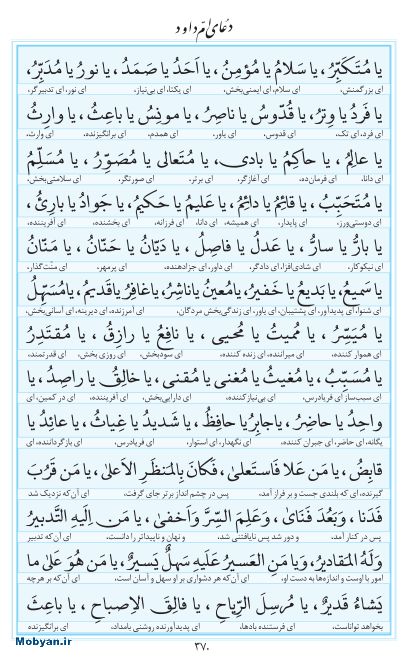 دعای امّ داود
یا مُتَکَبِّرُ، یا سَلامُ یا مُؤمِنُ، یا اَحَدُ یا صَمَدُ، یا نورُ یا مُدَبِّرُ،
ای بزرگمنش، ای سلام، ای ایمنی‌بخش، ای یکتا، ای بی‌نیاز، ای نور، ای تدبیرگر،
یا فَردُ یا وِترُ، یا قُدّوسُ یا ناصِرُ، یا مونِسُ یا باعِثُ، یا وارِثُ
ای فرد، ای تک، ای قدوس، ای یاور، ای همدم، ای برانگیزنده، ای وارث،
یا عالِمُ، یا حاکِمُ یا بادی، یا مُتَعالی یا مُصَوِّرُ، یا مُسَلِّمُ
ای دانا، ای فرمان‌ده، ای آغازگر، ای برتر، ای صورتگر، ای سلامتی‌بخش،
یا مُتَحَبِّبُ، یا قائِمُ یا دائِمُ، یا عَلیمُ یا حَکیمُ، یا جَوادُ یا بارِئُ،
ای دوستی‌ورز، ای پایدار، ای همیشه، ای دانا، ای فرزانه، ای بخشنده، ای آفریننده،
یا بارُّ یا سارُّ، یا عَدلُ یا فاصِلُ، یا دَیّانُ یا حَنّانُ، یا مَنّانُ
ای نیکوکار، ای شادی‌افزا، ای دادگر، ای داور، ای جزادهنده، ای پرمهر، ای منّت‌گذار،
یا سَمیعُ، یا بَدیعُ یا خَفیرُ، یا مُعینُ یا ناشِرُ، یا غافِرُ یا قَدیمُ، یا مُسَهِّلُ
ای شنوا، ای پدیدآور، ای پشتیبان، ای یاور، ای زندگی‌بخش مردگان، ای آمرزنده، ای دیرینه، ای آسانی‌بخش،
یا مُیَسِّرُ، یا مُمیتُ یا مُحیی، یا نافِعُ یا رازِقُ، یا مُقتَدِرُ
ای هموار کننده، ای میراننده، ای زنده کننده، ای سودبخش، ای روزی بخش، ای قدرتمند،
یا مُسَبِّبُ، یا مُغیثُ یا مُغنی یا مُقنی، یا خالِقُ یا راصِدُ، یا
ای سبب‌ساز، ای فریادرس، ای بی‌نیازکننده، ای دارایی‌بخش، ای آفریننده، ای در کمین، ای
واحِدُ یا حاضِرُ، یا جابِرُ یا حافِظُ، یا شَدیدُ یا غِیاثُ، یا عائِدُ یا
یگانه، ای حاضر، ای جبران کننده، ای نگهدار، ای استوار، ای فریادرس، ای بازگرداننده، ای
قابِضُ، یا مَن عَلا فَاستَعلی، فَکانَ بِالمَنظَرِ الاَعلی، یا مَن قَرُبَ
گیرنده، ای که بلندی جست و بر فراز آمد، پس در چشم انداز برتر جای گرفت، ای آن‌که نزدیک شد
فَدَنا، وَبَعُدَ فَنَای، وَعَلِمَ السِّرَّ وَاَخفی، یا مَن اِلَیهِ التَّدبیرُ
پس در کنار آمد، و دور شد پس نایافتنی شد، و نهان و ناپیداتر را دانست، ای آن‌که تدبیر
وَلَهُ المَقادیرُ، وَیا مَنِ العَسیرُ عَلَیهِ سَهلٌ یَسیرٌ، یا مَن هُوَ عَلی ما
امور با اوست و اندازه‌ها به دست او، ای آن‌که هر دشواری بر او سهل و آسان است، ای آن‌که بر هرچه
یَشاءُ قَدیرٌ، یا مُرسِلَ الرِّیاحِ، یا فالِقَ الاِصباحِ، یا باعِثَ
بخواهد تواناست، ای فرستنده بادها، ای پدیدآورنده روشنی بامداد، ای برانگیزنده
۳۷۰
Mobyan.ir